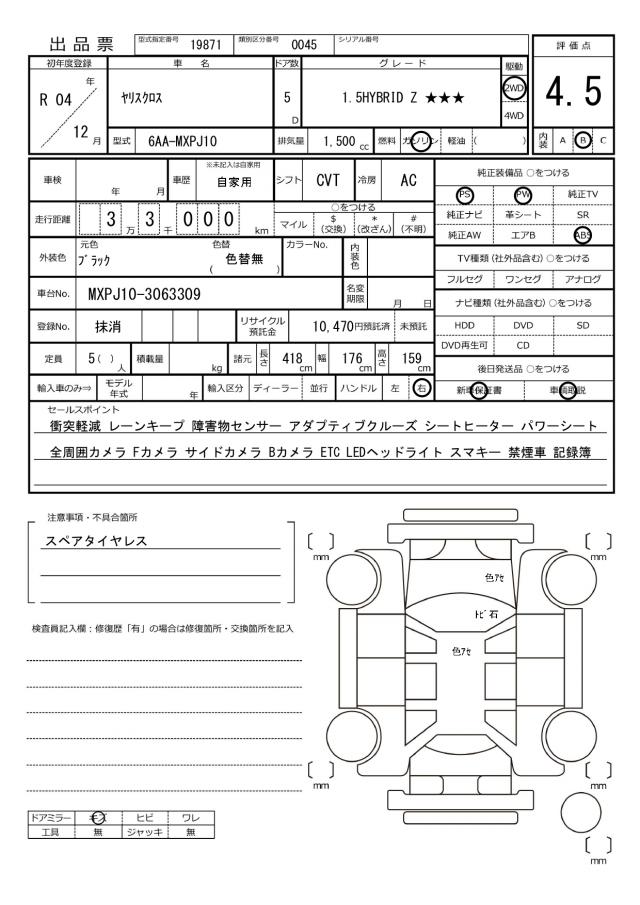 出品票 型式指定番号 19871 類別区分番号 0045 シリアル番号
評価点
初年度登録 車名 ドア数 グレード 駆動
R 04 年 ヤリスクロス 5 D 1.5HYBRID Z ★★★ 2WD 4WD
4.5
12 月 型式 6AA-MXPJ10 排気量 1,500 cc 燃料 ガソリン 軽油 ( )
内装 A B C
車検 年 月 車歴 ※未記入は自家用 自家用 シフト CVT 冷房 AC
純正装備品 ○をつける
PS PW 純正TV
純正ナビ 革シート SR
純正AW エアB ABS
走行距離 3 万 3 千 0 0 0 km ○をつける
マイル $ (交換) * (改ざん) # (不明)
外装色 元色 ブラック 色替 ( 色替無 ) カラーNo. 内装色
TV種類 (社外品含む) ○をつける
フルセグ ワンセグ アナログ
車台No. MXPJ10-3063309 名変期限 月 日
ナビ種類 (社外品含む) ○をつける
HDD DVD SD
DVD再生可 CD
登録No. 抹消 リサイクル預託金 10,470円預託済 未預託
定員 5 ( ) 人 積載量 kg 諸元 長さ 418 cm 幅 176 cm 高さ 159 cm
後日発送品 ○をつける
新車保証書 車輌取説
輸入車のみ⇒ モデル年式 年 輸入区分 ディーラー 並行 ハンドル 左 右
セールスポイント
衝突軽減 レーンキープ 障害物センサー アダプティブクルーズ シートヒーター パワーシート
全周囲カメラ Fカメラ サイドカメラ Bカメラ ETC LEDヘッドライト スマキー 禁煙車 記録簿
注意事項・不具合箇所
スペアタイヤレス
検査員記入欄：修復歴「有」の場合は修復箇所・交換箇所を記入
〔 〕 mm
〔 〕 mm
色アセ
トビ石
色アセ
〔 〕 mm
〔 〕 mm
〔 〕 mm
ドアミラー キズ ヒビ ワレ
工具 無 ジャッキ 無